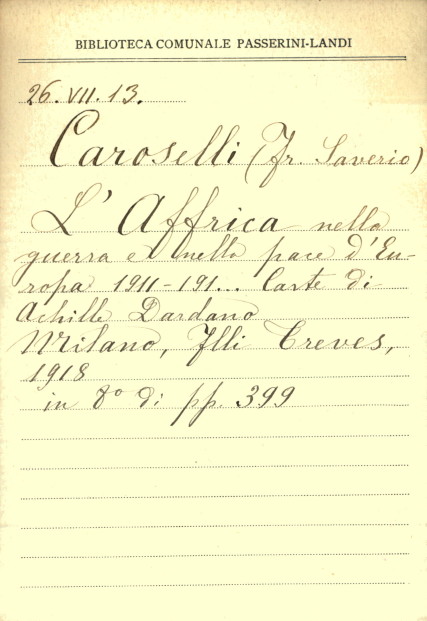 BIBLIOTECA COMUNALE PASSERINI-LANDI
26.VII.13.
Caroselli (Fr. Saverio)
L'Affrica nella
guerra e nella pace d'Eu-
ropa 1911-191... Carte di
Achille Dardano
Milano, Flli Treves,
1918
in 8° di pp. 399